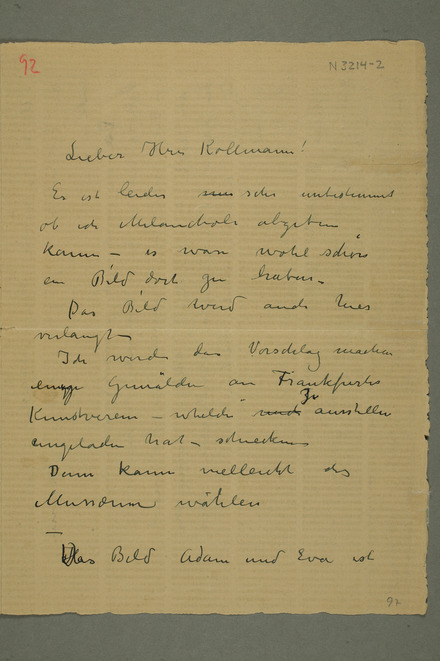 92
N 3214-2
Lieber Herr Kollmann!
Es ist leider sehr unbestimmt
ob ich Melancholi abgeben
kann – es war wohl schön
ein Bild dort zu haben –
Das Bild wird auch hier
verlangt –
Ich würde den Vorschlag machen
einige Gemälden an Frankfurter
Kunstverein – welche zu ausstellen
eingeladen hat – schicken
Dann kann vielleicht das
Museum wählen
Das Bild Adam und Eva ist
92